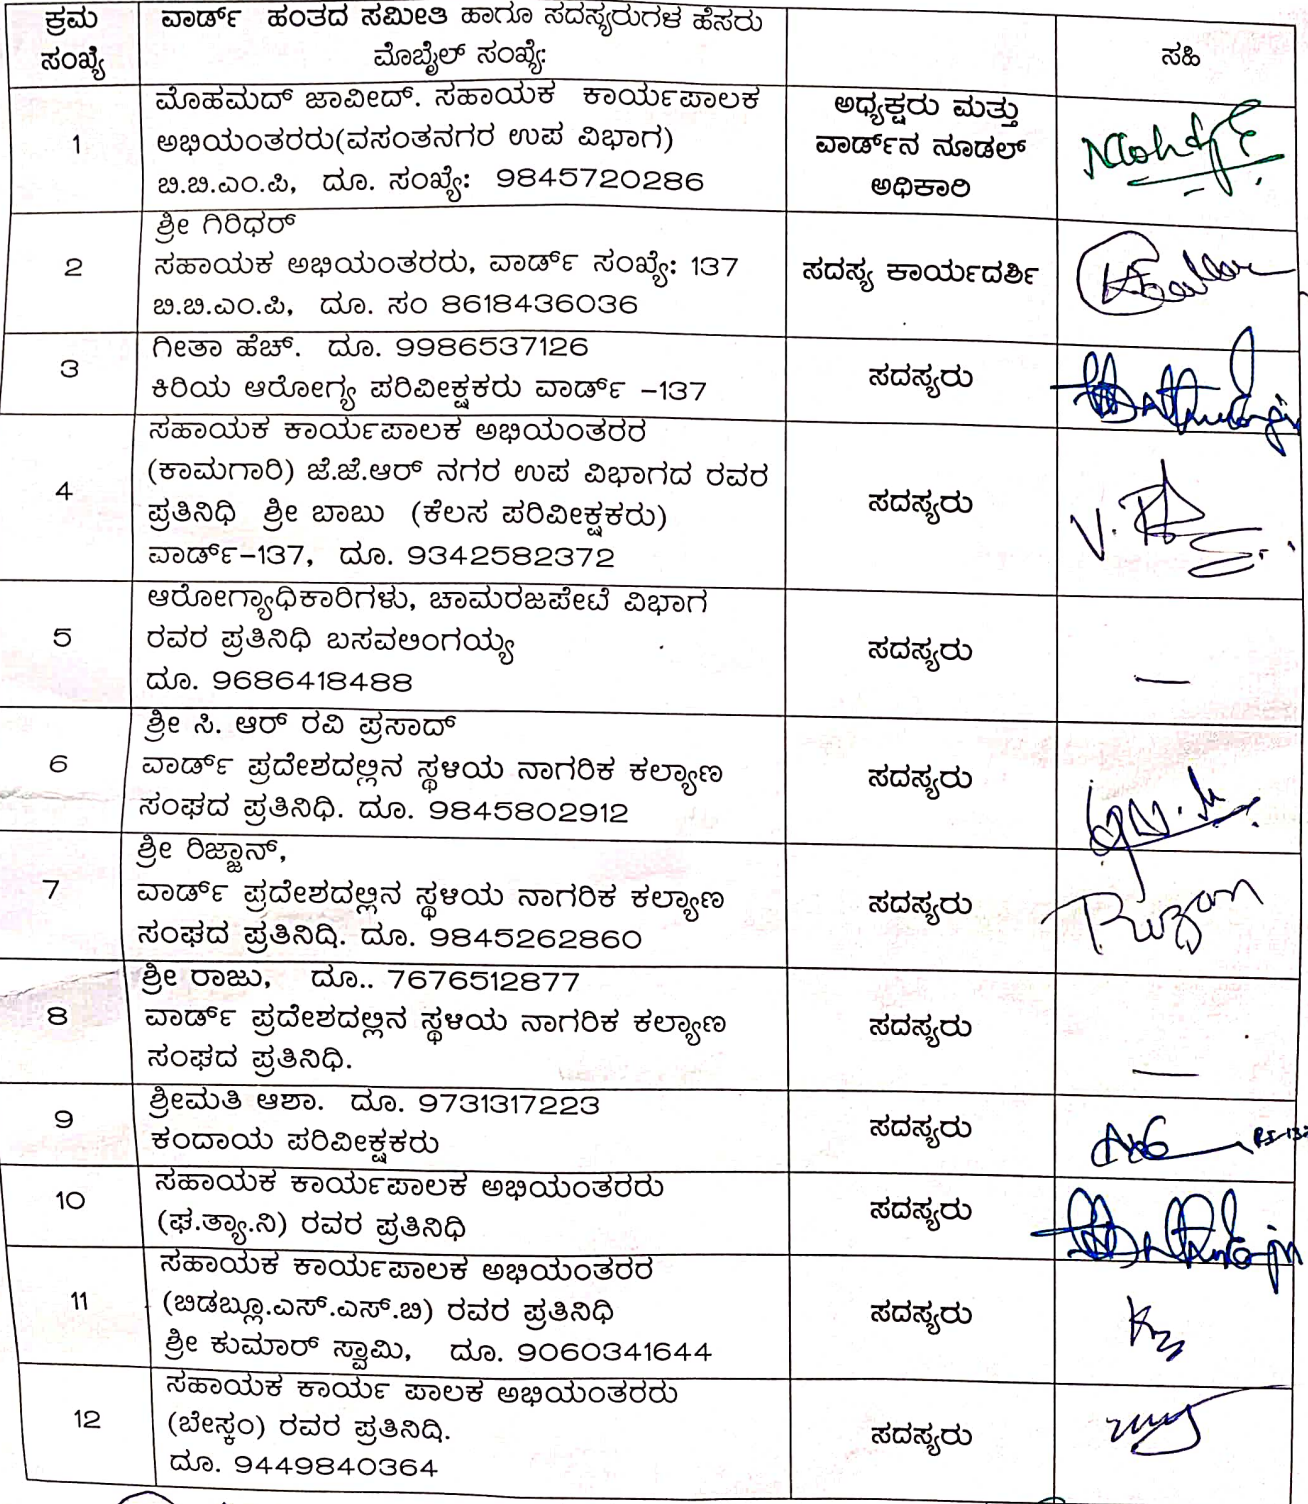 ಕ್ರಮ ಸಂಖ್ಯೆ
ವಾರ್ಡ್ ಹಂತದ ಸಮೀತಿ ಹಾಗೂ ಸದಸ್ಯರುಗಳ ಹೆಸರು
ಮೊಬೈಲ್ ಸಂಖ್ಯೆ:
ಸಹಿ
1
ಮೊಹಮದ್ ಜಾವೀದ್. ಸಹಾಯಕ ಕಾರ್ಯಪಾಲಕ
ಅಭಿಯಂತರರು(ವಸಂತನಗರ ಉಪ ವಿಭಾಗ)
ಬಿ.ಬಿ.ಎಂ.ಪಿ, ದೂ. ಸಂಖ್ಯೆ: 9845720286
ಅಧ್ಯಕ್ಷರು ಮತ್ತು
ವಾರ್ಡ್‌ನ ನೂಡಲ್
ಅಧಿಕಾರಿ
2
ಶ್ರೀ ಗಿರಿಧರ್
ಸಹಾಯಕ ಅಭಿಯಂತರರು, ವಾರ್ಡ್ ಸಂಖ್ಯೆ: 137
ಬಿ.ಬಿ.ಎಂ.ಪಿ, ದೂ. ಸಂ 8618436036
ಸದಸ್ಯ ಕಾರ್ಯದರ್ಶಿ
3
ಗೀತಾ ಹೆಚ್. ದೂ. 9986537126
ಕಿರಿಯ ಆರೋಗ್ಯ ಪರಿವೀಕ್ಷಕರು ವಾರ್ಡ್ -137
ಸದಸ್ಯರು
4
ಸಹಾಯಕ ಕಾರ್ಯಪಾಲಕ ಅಭಿಯಂತರರ
(ಕಾಮಗಾರಿ) ಜೆ.ಜೆ.ಆರ್ ನಗರ ಉಪ ವಿಭಾಗದ ರವರ
ಪ್ರತಿನಿಧಿ ಶ್ರೀ ಬಾಬು (ಕೆಲಸ ಪರಿವೀಕ್ಷಕರು)
ವಾರ್ಡ್-137, ದೂ. 9342582372
ಸದಸ್ಯರು
5
ಆರೋಗ್ಯಾಧಿಕಾರಿಗಳು, ಚಾಮರಜಪೇಟೆ ವಿಭಾಗ
ರವರ ಪ್ರತಿನಿಧಿ ಬಸವಲಿಂಗಯ್ಯ
ದೂ. 9686418488
ಸದಸ್ಯರು
6
ಶ್ರೀ ಸಿ. ಆರ್ ರವಿ ಪ್ರಸಾದ್
ವಾರ್ಡ್ ಪ್ರದೇಶದಲ್ಲಿನ ಸ್ಥಳಿಯ ನಾಗರಿಕ ಕಲ್ಯಾಣ
ಸಂಘದ ಪ್ರತಿನಿಧಿ. ದೂ. 9845802912
ಸದಸ್ಯರು
7
ಶ್ರೀ ರಿಜ್ಞಾನ್,
ವಾರ್ಡ್ ಪ್ರದೇಶದಲ್ಲಿನ ಸ್ಥಳಿಯ ನಾಗರಿಕ ಕಲ್ಯಾಣ
ಸಂಘದ ಪ್ರತಿನಿದಿ. ದೂ. 9845262860
ಸದಸ್ಯರು
8
ಶ್ರೀ ರಾಜು, ದೂ.. 7676512877
ವಾರ್ಡ್ ಪ್ರದೇಶದಲ್ಲಿನ ಸ್ಥಳಿಯ ನಾಗರಿಕ ಕಲ್ಯಾಣ
ಸಂಘದ ಪ್ರತಿನಿಧಿ.
ಸದಸ್ಯರು
9
ಶ್ರೀಮತಿ ಆಶಾ. ದೂ. 9731317223
ಕಂದಾಯ ಪರಿವೀಕ್ಷಕರು
ಸದಸ್ಯರು
10
ಸಹಾಯಕ ಕಾರ್ಯಪಾಲಕ ಅಭಿಯಂತರರು
(ಘ.ತ್ಯಾ.ನಿ) ರವರ ಪ್ರತಿನಿಧಿ
ಸದಸ್ಯರು
11
ಸಹಾಯಕ ಕಾರ್ಯಪಾಲಕ ಅಭಿಯಂತರರ
(ಬಿಡಬ್ಲೂ.ಎಸ್.ಎಸ್.ಬಿ) ರವರ ಪ್ರತಿನಿಧಿ
ಶ್ರೀ ಕುಮಾರ್ ಸ್ವಾಮಿ, ದೂ. 9060341644
ಸದಸ್ಯರು
12
ಸಹಾಯಕ ಕಾರ್ಯ ಪಾಲಕ ಅಭಿಯಂತರರು
(ಬೇಸ್ಕಂ) ರವರ ಪ್ರತಿನಿದಿ.
ದೂ. 9449840364
ಸದಸ್ಯರು